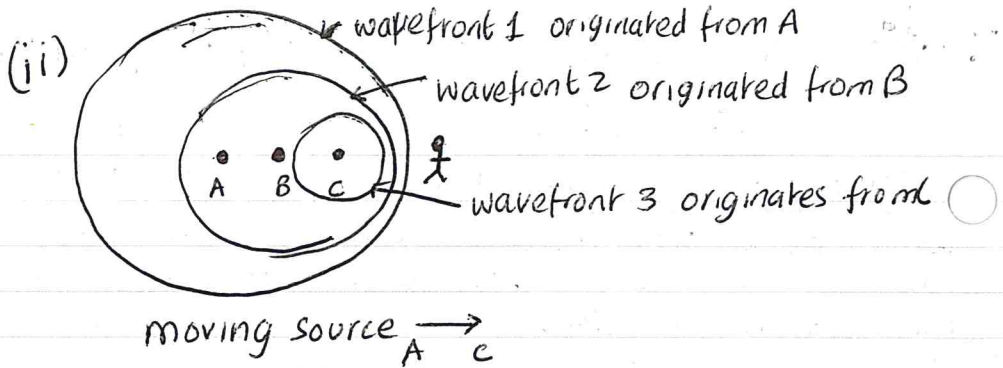 (ii)
wavefront 1 originated from A
wavefront 2 originated from B
A B C
wavefront 3 originates from C
moving source A → C